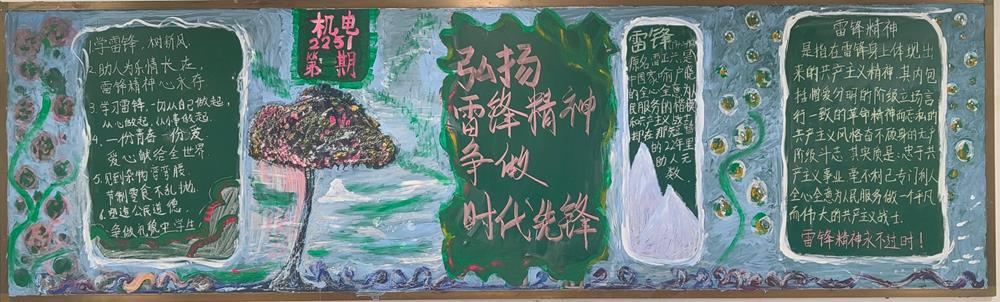 1.学雷锋,树新风.
2.助人为乐情长走,
雷锋精神心永存
3.学习雷锋.一切从自己做起,
从心做起,从小事做起.
4.一份青春一份爱
爱心献给全世界
5.见到杂物弯弯腰
节制零食不乱抛
6.塑造公民道德
争做礼貌中学生
机电
2231
第 期
弘扬
雷锋精神
争做
时代先锋
雷锋
原名雷正兴,是
中国家喻户晓
的全心全意为人
民服务的楷模
和共产主义战士
却在那短暂
的22年里
助人无
数
雷锋精神
是指在雷锋身上体现出
来的共产主义精神,其内包
括憎爱分明的阶级立场言
行一致的革命精神而忘私的
共产主义风格奋不顾身的无产
阶级斗志 其实质是:忠于共
产主义事业 毫不利己专门利人
全心全意为人民服务做一个平凡
而伟大的共产主义战士.
雷锋精神永不过时!